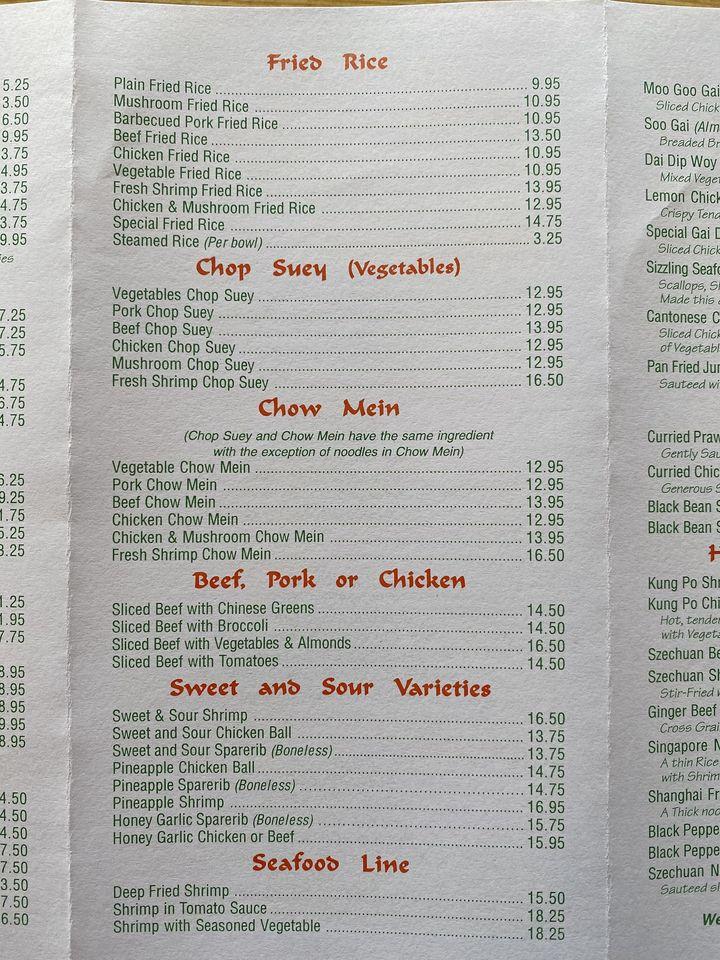 5.25
3.50
6.50
9.95
3.75
4.95
3.75
4.75
3.75
9.95
7.25
7.25
5.75
4.75
6.75
4.75
6.25
9.25
1.75
5.25
3.25
1.25
1.95
7.75
8.95
8.95
8.95
9.95
8.95
4.50
4.50
4.50
7.50
7.50
3.50
7.50
6.50
Fried Rice
Plain Fried Rice 9.95
Mushroom Fried Rice 10.95
Barbecued Pork Fried Rice 10.95
Beef Fried Rice 13.50
Chicken Fried Rice 10.95
Vegetable Fried Rice 10.95
Fresh Shrimp Fried Rice 13.95
Chicken & Mushroom Fried Rice 12.95
Special Fried Rice 14.75
Steamed Rice (Per bowl) 3.25
Chop Suey (Vegetables)
Vegetables Chop Suey 12.95
Pork Chop Suey 12.95
Beef Chop Suey 13.95
Chicken Chop Suey 12.95
Mushroom Chop Suey 12.95
Fresh Shrimp Chop Suey 16.50
Chow Mein
(Chop Suey and Chow Mein have the same ingredient
with the exception of noodles in Chow Mein)
Vegetable Chow Mein 12.95
Pork Chow Mein 12.95
Beef Chow Mein 13.95
Chicken Chow Mein 12.95
Chicken & Mushroom Chow Mein 13.95
Fresh Shrimp Chow Mein 16.50
Beef, Pork or Chicken
Sliced Beef with Chinese Greens 14.50
Sliced Beef with Broccoli 14.50
Sliced Beef with Vegetables & Almonds 16.50
Sliced Beef with Tomatoes 14.50
Sweet and Sour Varieties
Sweet & Sour Shrimp 16.50
Sweet and Sour Chicken Ball 13.75
Sweet and Sour Sparerib (Boneless) 13.75
Pineapple Chicken Ball 14.75
Pineapple Sparerib (Boneless) 14.75
Pineapple Shrimp 16.95
Honey Garlic Sparerib (Boneless) 15.75
Honey Garlic Chicken or Beef 15.95
Seafood Line
Deep Fried Shrimp 15.50
Shrimp in Tomato Sauce 18.25
Shrimp with Seasoned Vegetable 18.25
Moo Goo Gai
Sliced Chick
Soo Gai (Alm
Breaded Br
Dai Dip Woy
Mixed Veget
Lemon Chick
Crispy Tend
Special Gai D
Sliced Chick
Sizzling Seafo
Scallops, Sh
Made this
Cantonese C
Sliced Chick
of Vegetabl
Pan Fried Jum
Sauteed wi
Curried Praw
Gently Sau
Curried Chic
Generous S
Black Bean S
Black Bean S
H
Kung Po Shr
Kung Po Chi
Hot, tender
with Vegeta
Szechuan Be
Szechuan Sh
Stir-Fried
Ginger Beef
Cross Grai
Singapore N
A thin Rice
with Shrim
Shanghai Fr
A Thick noo
Black Peppe
Black Peppe
Szechuan N
Sauteed sl
We